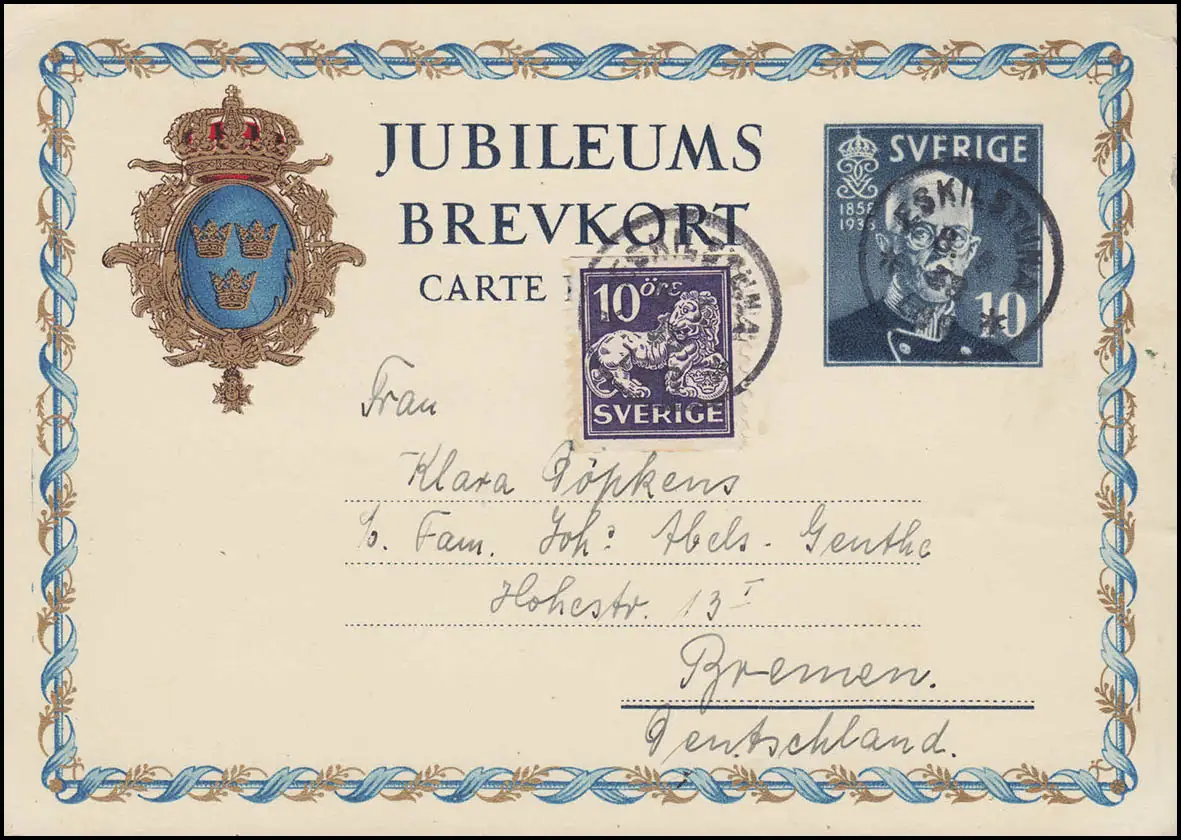 JUBILEUMS
BREVKORT
CARTE
SVERIGE
1858
1938
10
ESKILSTUNA
8
10 öre
SVERIGE
Frau
Klara Pöpkens
b. Fam. Joh's Abels-Genthe
Hohestr. 13 I
Bremen.
Deutschland.